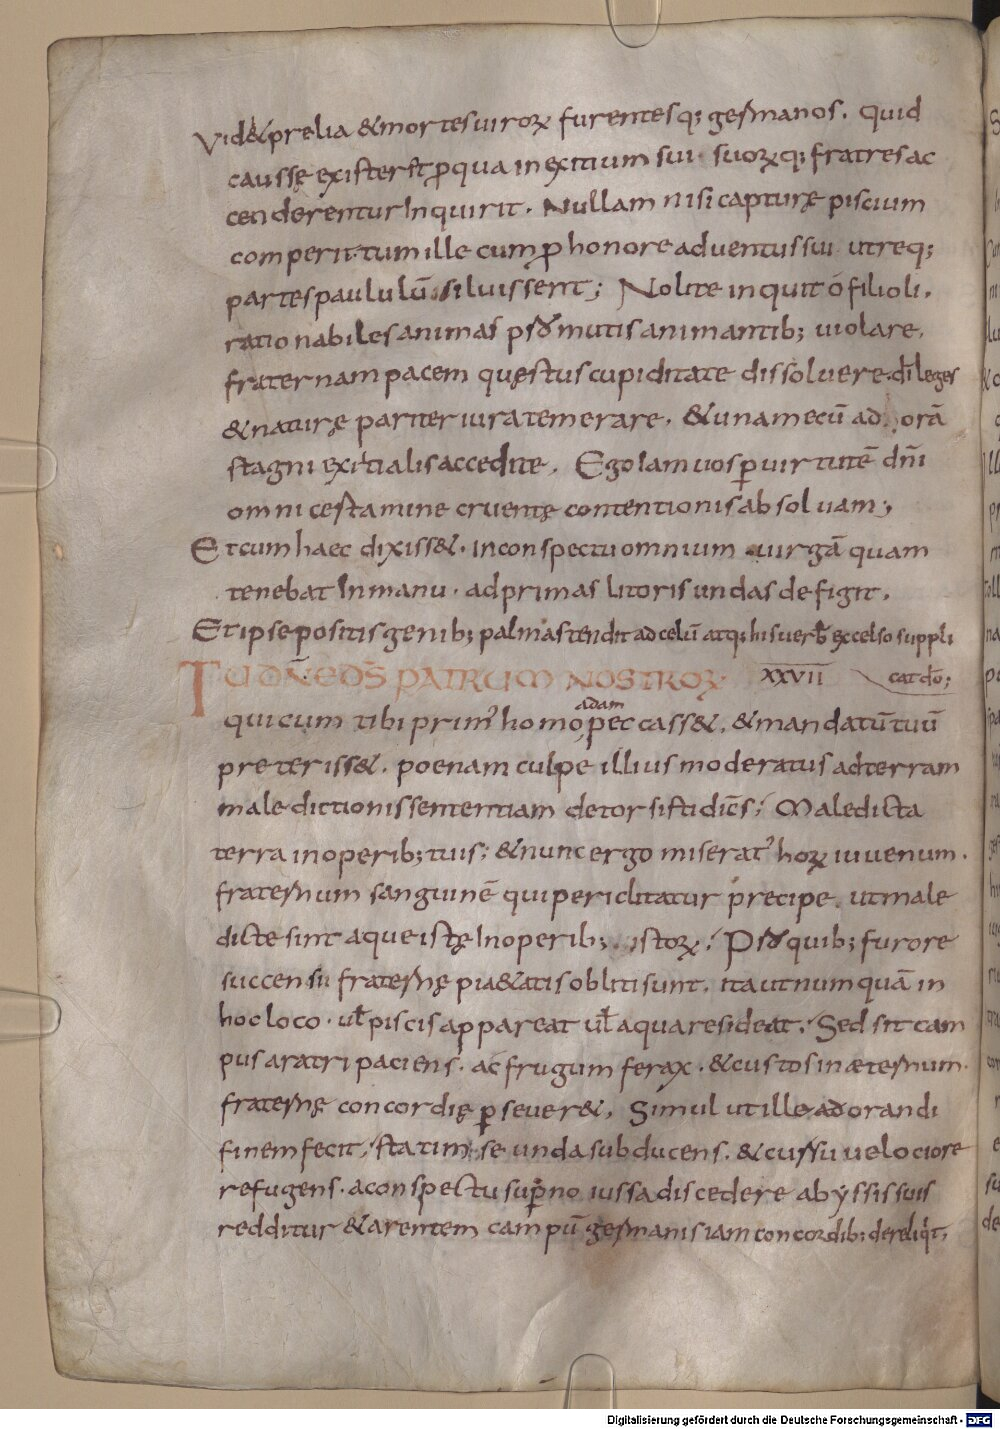 Vid& prelia & mortes uiroꝝ furentesq; germanos. Quid
caussę existerꝫ ꝓ qua in exitium sui suoꝝq; fratres ac
cenderentur Inquirit. Nullam nisi capturę piscium
comperit. tum ille cum ꝓ honore aduentus sui utreq;
partes paululū siluissent; Nolite inquit ó filioli.
rationabiles animas ꝓ mutis animantib; uiolare.
fraternam pacem quęstus cupiditate dissoluere. di leges
& naturę pariter iura temerare. & una mecū ad orā
stagni exitialis accedite. Ego Iam uos ꝑ uirtutē dn̄i
omni certamine cruentę contentionis absoluam;
Et cum haec dixiss&. in conspectu omnium uirgā quam
tenebat In manu. ad primas litoris undas defigit.
Et ipse positis genib; palmas tendit ad celū atq; his uerb̄ excelso suppli
TU DN̄E DS̄ PATRUM NOSTROꝜ XXVII cat dō;
qui cum tibi primꝰ homo adam peccass&. & mandatū tuū
preteriss&. poenam culpe illius moderatus ad terram
maledictionis sententiam detorsisti dicēs; Maledicta
terra in operib; tuis; & nunc ergo miseratꝰ hoꝝ iuuenum.
fraternum sanguinē qui periclitatur precipe. ut male
dicte sint aque istę In operib; istoꝝ; P quib; furore
succensi fraternę pi&atis obliti sunt. ita ut numquā in
hoc loco. ul̄ piscis appareat ul̄ aqua resideat. Sed sit cam
pus aratri paciens. ac frugum ferax. & custos in æternum.
fraternę concordię ꝑseuer&. Simul ut ille adorandi
finem fecit. statim se unda subducens. & cursu uelociore
refugens. a conspectu suꝑno iussa discedere abyssis suis
redditur & arentem campū germanis iam concordib; dereliqt.
Digitalisierung gefördert durch die Deutsche Forschungsgemeinschaft - DFG